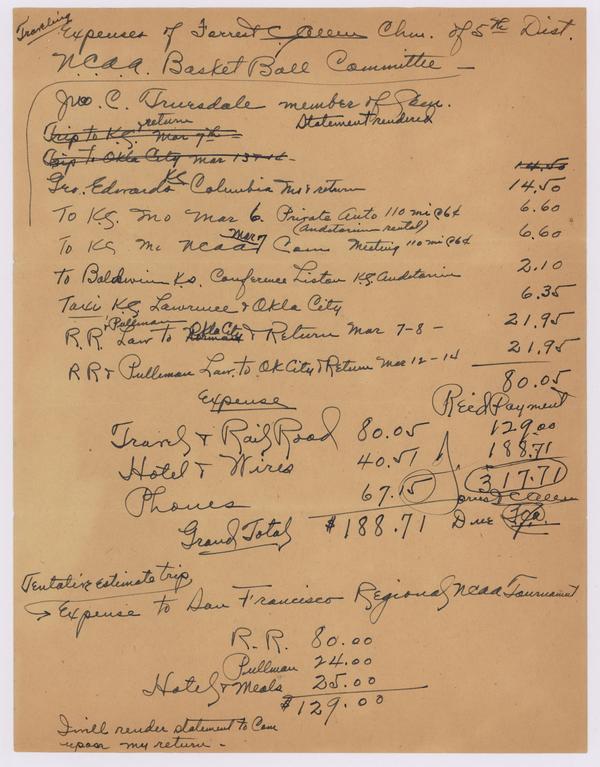 Traveling
Expenses of Forrest C. Allen Chm. of 5th Dist.
N.C.A.A. Basket Ball Committee —
Jno. C. Truesdale member of
Statement rendered
return
Trip to K.C. Mar 7th
Trip to Okla City Mar 13-14 - 14.50
Geo. Edwards KC Columbia Mo & return 14.50
To KC. Mo Mar 6 Private Auto 110 mi @ 6¢ 6.60
(Auditorium rental)
To KC Mo NCAA Mar 7 Com Meeting 110 mi @ 6¢ 6.60
To Baldwin Ks. Conference Liston KC Auditorium 2.10
Taxi KC Lawrence & Okla City 6.35
R.R. & Pullman Law to Okla City & Return Mar 7-8 - 21.95
RR & Pullman Law. to Ok City & Return Mar 12-14 21.95
80.05
Expense Rec'd Payment
Travel & Rail Road 80.05 129.00
Hotel & Wires 40.51 188.71
Phones 67.15 317.71
Forrest C Allen
Grand Total $188.71 Due
Tentative estimate trip
→ Expense to San Francisco Regional NCAA Tournament
R.R. 80.00
Pullman 24.00
Hotel & Meals 25.00
$129.00
I will render statement to Com
upon my return -